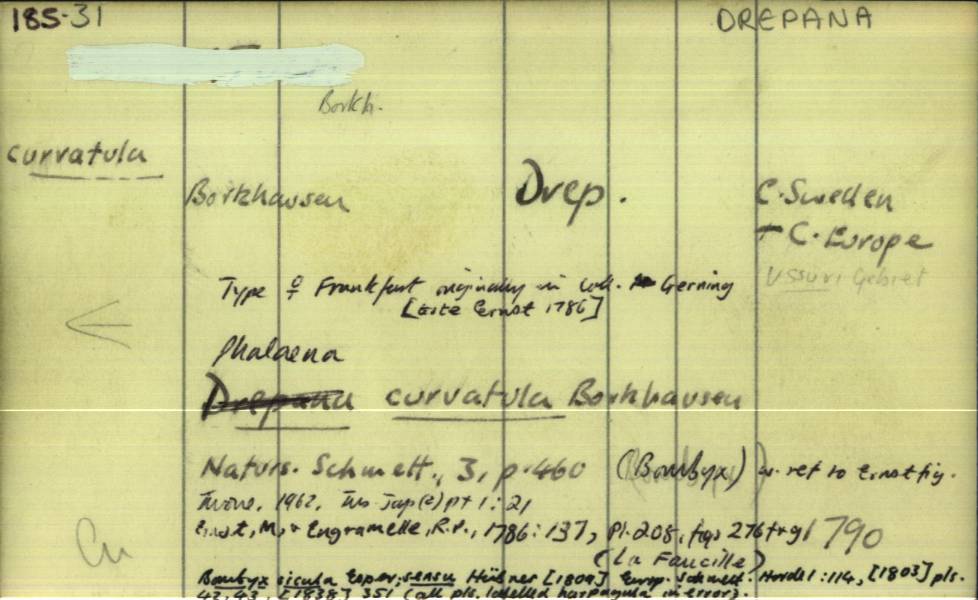 185-31 DREPANA
Borkh.
curvatula
Borkhausen Drep. C. Sweden
+ C. Europe
Ussuri Gebiet
Type ♀ Frankfurt originally in coll. Gerning
[teste Ernst 1786]
Phalaena
Drepana curvatula Borkhausen
Naturs. Schmett., 3, p. 460 (Bombyx) w. ref to Ernst fig.
Inoue, 1962, Ins. Jap (2) pt 1: 21
Ernst, M., & Engramelle, R.P., 1786: 137, Pl. 208, figs 276 f & g 1790
(La Faucille)
Bombyx sicula Esper; sensu Hübner [1804] Europ. Schmett. Horde 1: 114, [1803] pls.
42, 43, [1838] 351 (all pls. labelled harpagula in error).